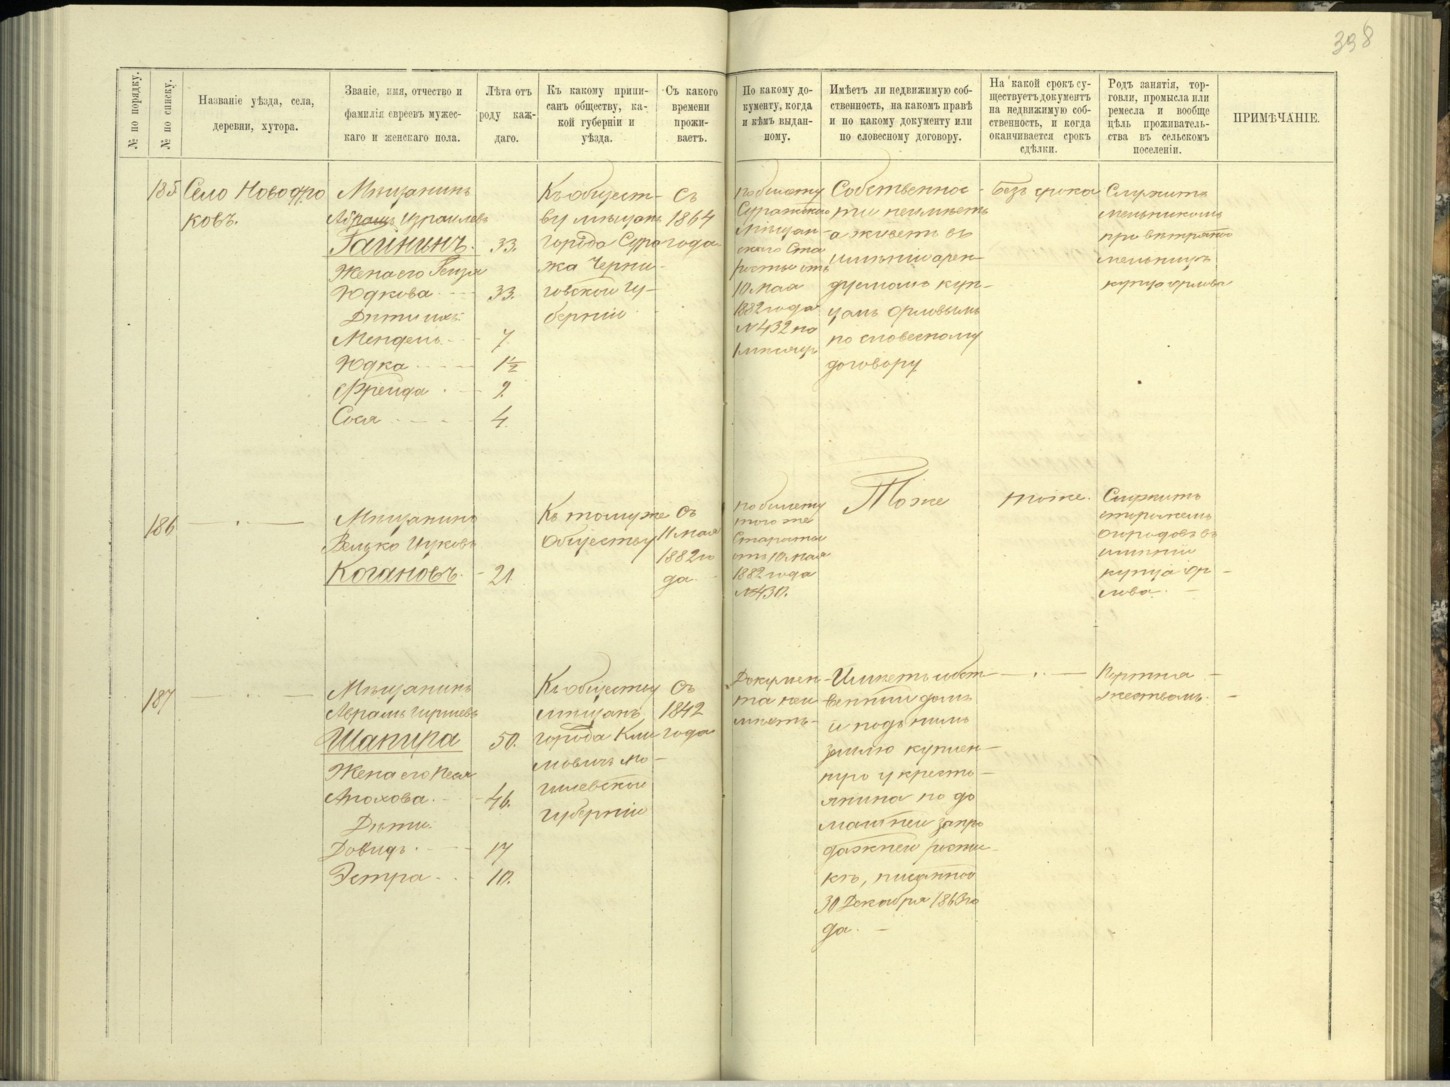 398
№ по порядку.
№ по списку.
Названіе уѣзда, села,
деревни, хутора.
Званіе, имя, отчество и
фамилія евреевъ мужес-
каго и женскаго пола.
Лѣта отъ
роду каж-
даго.
Къ какому припи-
санъ обществу, ка-
кой губерніи и
уѣзда.
Съ какого
времени
прожи-
ваетъ.
По какому до-
кументу, когда
и кѣмъ выдан-
ному.
Имѣетъ ли недвижимую соб-
ственность, на какомъ правѣ
и по какому документу или
по словесному договору.
На какой срокъ су-
ществуетъ документъ
на недвижимую соб-
ственность, и когда
оканчивается срокъ
сдѣлки.
Родъ занятія, тор-
говли, промысла или
ремесла и вообще
цѣль проживатель-
ства въ сельскомъ
поселеніи.
ПРИМѢЧАНІЕ.
185
Село Новодро
ковъ.
Мѣщанинъ
Абрамъ Израилевъ
Гайнинъ. 33.
Жена его
Юдкова 33.
Дѣти ихъ
Мендель 7.
Юдка 1½
Фрейда 2
Сося 4.
Къ общест-
ву мѣщанъ
города Сура
жа Черни-
говской гу-
берніи
Съ
1864
года
По билету
Суражска
Мѣщан-
скаго Ста
росты отъ
10 мая
1882 года
№ 432 на
Собственнос-
ти неимѣетъ
а живетъ въ
имѣніи арен-
дуемомъ куп-
цомъ Орловымъ
по словесному
договору
безъ срока
Служитъ
мельникомъ
при вѣтряной
мельницѣ
купца Орлова
186
Мѣщанинъ
Велько Ицковъ
Когановъ. 21
Къ томуже
Обществу
Съ
11 мая
1882 го
да
По билету
того же
Старосты
отъ 10 мая
1882 года
№ 430.
Тоже
тоже.
Служитъ
сторожемъ
огородовъ въ
имѣніи
купца Ор-
лова.
187
Мѣщанинъ
Абрамъ Гиршевъ
Шапира 50.
Жена его Песя
46.
Дѣти.
Довидъ 17
Эстра 10.
Къ обществу
мѣщанъ
города Кли
мовичъ Мо-
гилевской
губерніи
Съ
1842
года
Докумен-
та неи
мѣетъ-
Имѣетъ собст
венный домъ
и подъ нимъ
землю куплен-
ную у кресть-
янина по до
машней запро
дажней роспи-
скѣ, писанной
30 Декабря 1863 го
да.
Портня
жествомъ.